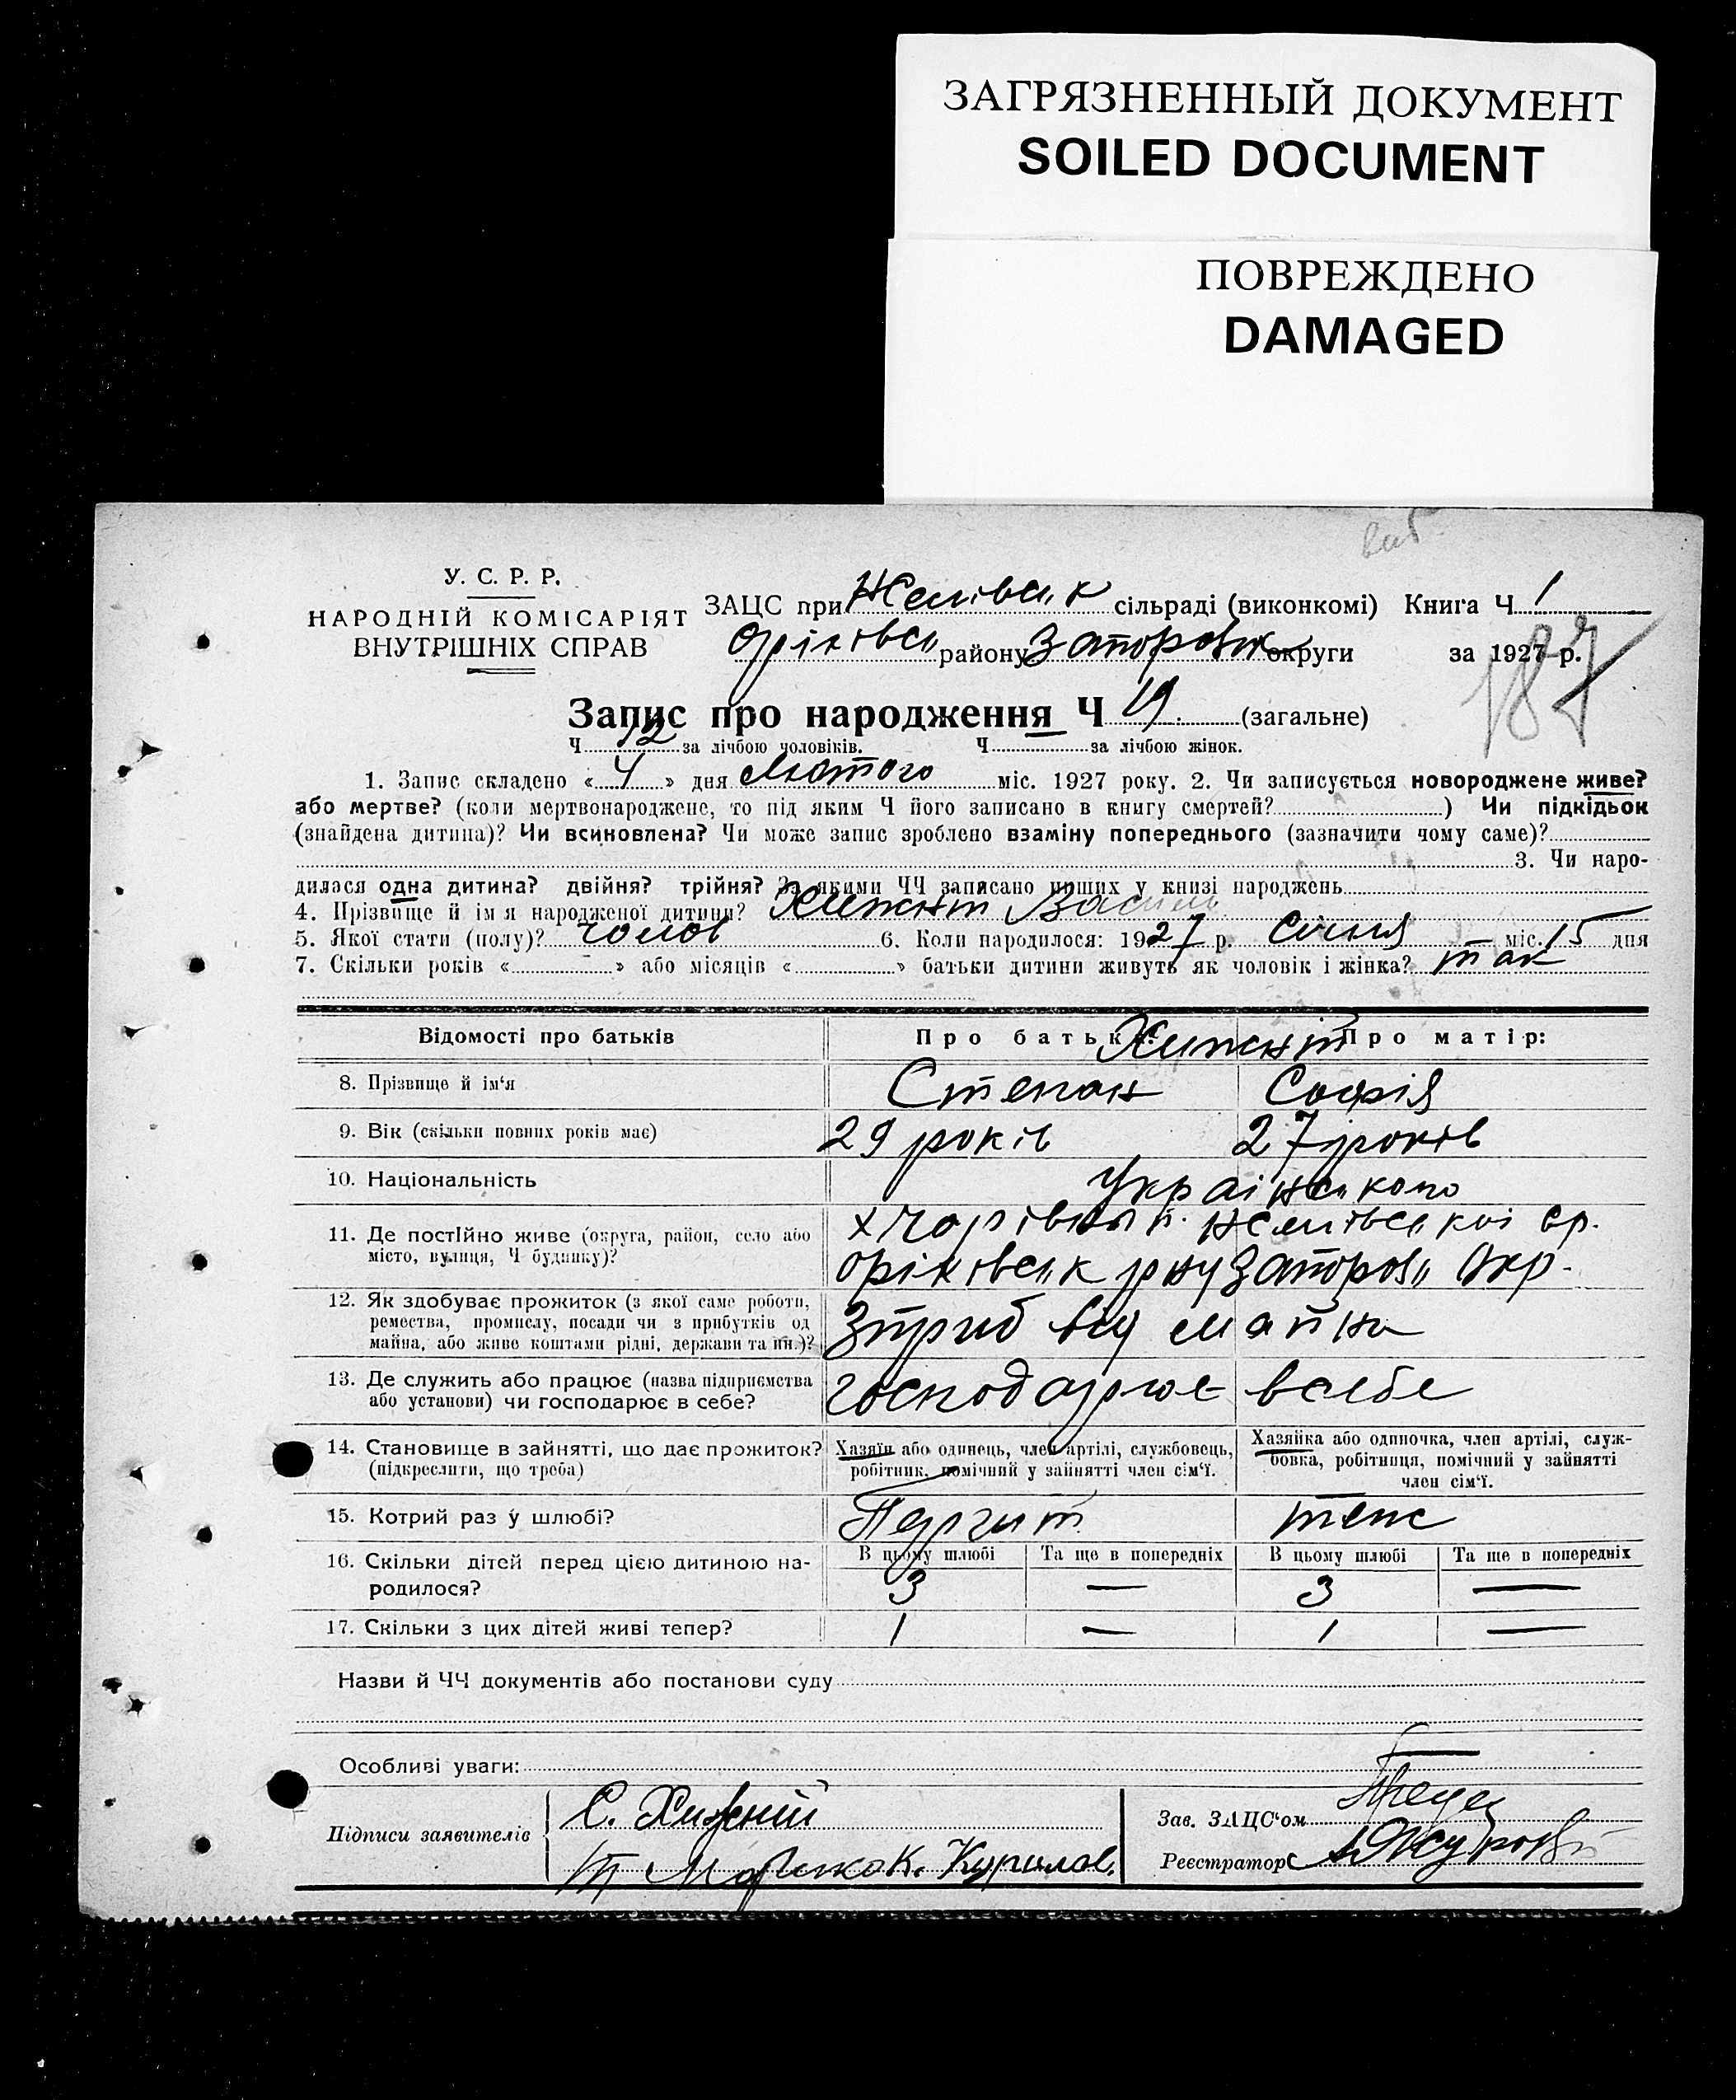 ЗАГРЯЗНЕННЫЙ ДОКУМЕНТ
SOILED DOCUMENT
ПОВРЕЖДЕНО
DAMAGED
У. С. Р. Р.
НАРОДНІЙ КОМІСАРІЯТ
ВНУТРІШНІХ СПРАВ
ЗАЦС при сільраді (виконкомі) Книга Ч 1
району Запорізьк округи за 1927 р.
187
Запис про народження Ч 19. (загальне)
Ч 12 за лічбою чоловіків. Ч за лічбою жінок.
1. Запис складено « 4 » дня Лютого міс. 1927 року. 2. Чи записується новороджене живе?
або мертве? (коли мертвонароджене, то під яким Ч його записано в книгу смертей? ) Чи підкідьок
(знайдена дитина)? Чи всиновлена? Чи може запис зроблено взаміну попереднього (зазначити чому саме)?
3. Чи наро-
дилася одна дитина? двійня? трійня? За якими ЧЧ записано инших у книзі народжень
4. Прізвище й ім'я народженої дитини? Хижній Василь
5. Якої стати (полу)? чолов 6. Коли народилося: 1927 р. Січня міс. 15 дня
7. Скільки років « » або місяців « » батьки дитини живуть як чоловік і жінка? так
Відомості про батьків Про батька: Про матір:
Хижній
8. Прізвище й ім'я Степан Софія
9. Вік (скільки повних років має) 29 років 27 років
10. Національність
11. Де постійно живе (округа, район, село або
місто, вулиця, Ч будинку)?
12. Як здобуває прожиток (з якої саме роботи,
ремества, промислу, посади чи з прибутків од
майна, або живе коштами рідні, держави та ин.)?
Зприб від майна
13. Де служить або працює (назва підприємства
або установи) чи господарює в себе?
господарює всебе
14. Становище в зайнятті, що дає прожиток?
(підкреслити, що треба)
Хазяїн або одинець, член артілі, службовець,
робітник, помічний у зайнятті член сім'ї.
Хазяйка або одиночка, член артілі, служ-
бовка, робітниця, помічний у зайнятті
член сім'ї.
15. Котрий раз у шлюбі? теж
16. Скільки дітей перед цією дитиною на-
родилося?
В цьому шлюбі Та ще в попередніх В цьому шлюбі Та ще в попередніх
3 — 3 —
17. Скільки з цих дітей живі тепер? 1 — 1 —
Назви й ЧЧ документів або постанови суду
Особливі уваги:
Підписи заявителів С. Хижній
Зав. ЗАЦС'ом
Реєстратор